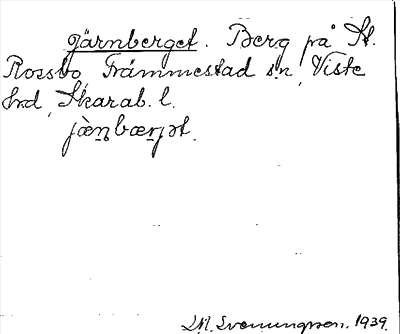 Järnberget. Berg på St.
Rossbo, Främmestad sn, Viste
hrd, Skarab. l.
jæ̀n̥bæn̥jət.
1939.